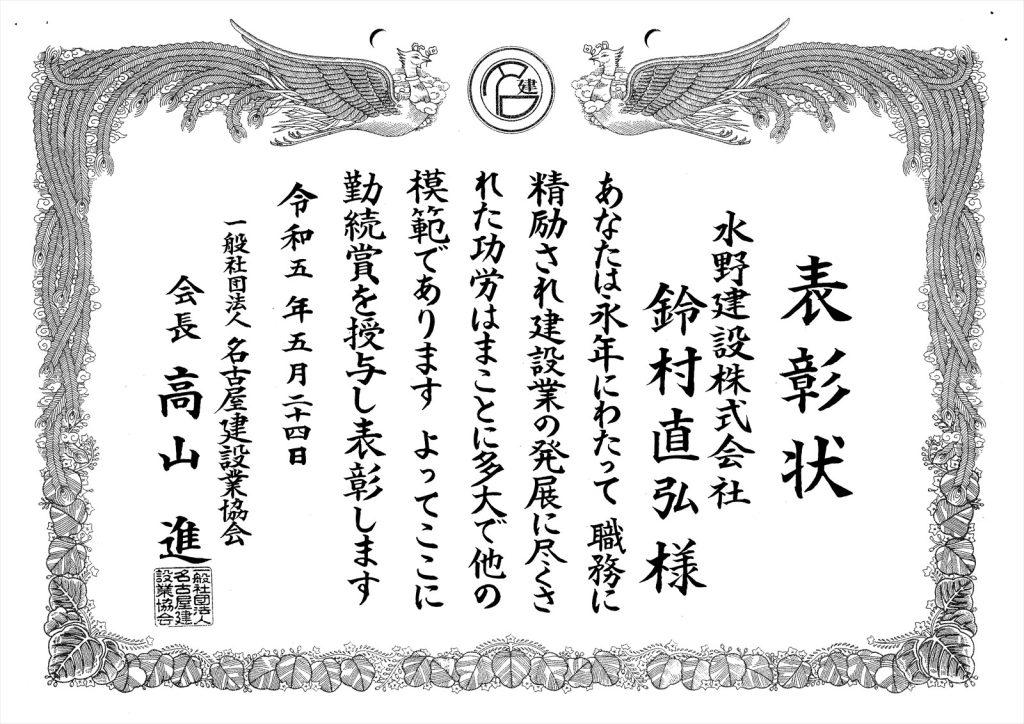 建
表彰状
水野建設株式会社
鈴村直弘様
あなたは永年にわたって 職務に
精励され建設業の発展に尽くさ
れた功労はまことに多大で他の
模範であります よってここに
勤続賞を授与し表彰します
令和五年五月二十四日
一般社団法人 名古屋建設業協会
会長 高山 進
一般社団法人
名古屋建
設業協会